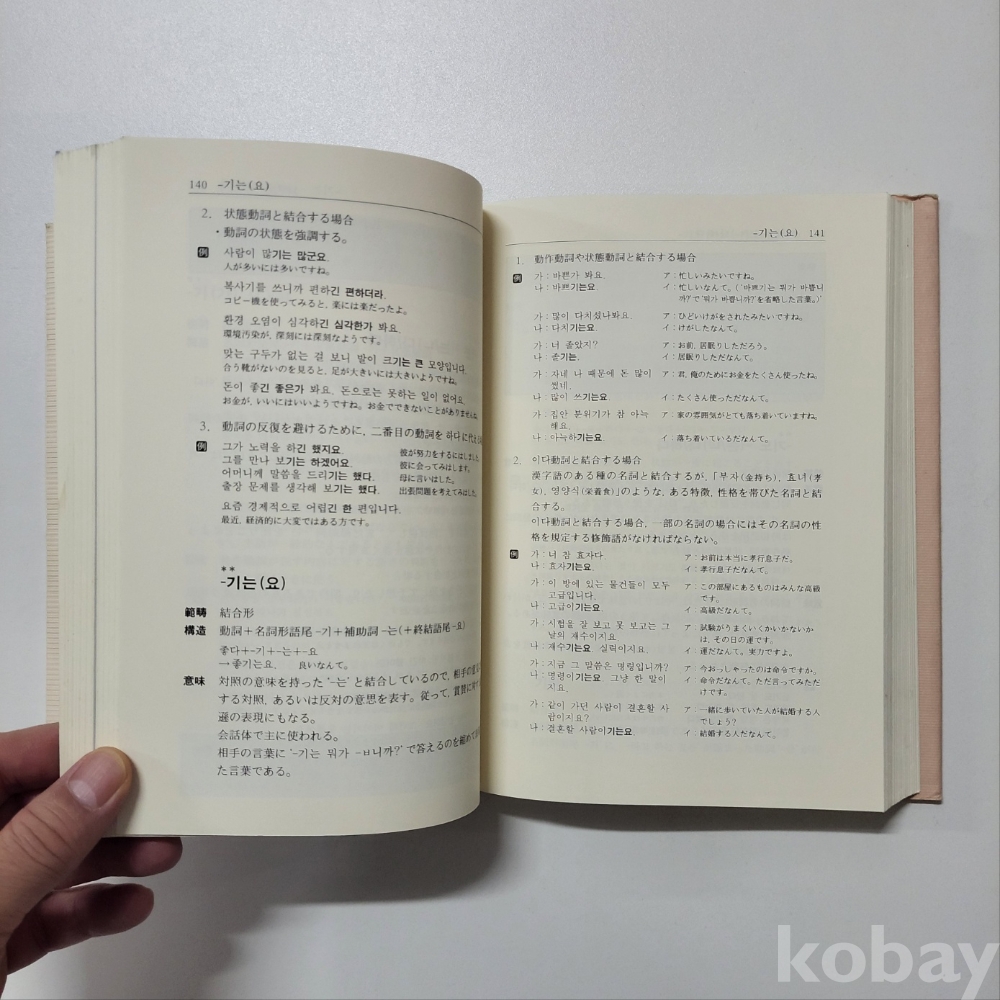 140 -기는(요)
2. 状態動詞と結合する場合
・動詞の状態を強調する。
例 사람이 많기는 많군요.
人が多いには多いですね。
복사기를 쓰니까 편하긴 편하더라.
コピー機を使ってみると, 楽には楽だったよ。
환경 오염이 심각하긴 심각한가 봐요.
環境汚染が, 深刻には深刻なようです。
맞는 구두가 없는 걸 보니 발이 크기는 큰 모양입니다.
合う靴がないのを見ると, 足が大きいには大きいようですね。
돈이 좋긴 좋은가 봐요. 돈으로는 못하는 일이 없어요.
お金が, いいにはいいようですね。お金でできないことがありませんね
3. 動詞の反復を避けるために, 二番目の動詞を 하다に代える
例 그가 노력을 하긴 했지요. 彼が努力をするにはしました
그를 만나 보기는 하겠어요. 彼に会ってみはします。
어머니께 말씀을 드리기는 했다. 母に言いはした。
출장 문제를 생각해 보기는 했다. 出張問題を考えてみはした。
요즘 경제적으로 어렵긴 한 편입니다.
最近, 経済的に大変ではある方です。
**
-기는(요)
範疇 結合形
構造 動詞+名詞形語尾 -기+補助詞 -는(+終結語尾 -요)
좋다+-기+-는+-요
→좋기는요. 良いなんて。
意味 対照の意味を持った '-는' と結合しているので, 相手の
する対照, あるいは反対の意思を表す。従って, 賞賛に対
遜の表現にもなる。
会話体で主に使われる。
相手の言葉に '-기는 뭐가 -ㅂ니까?' で答えるのを縮め
た言葉である。
-기는(요) 141
1. 動作動詞や状態動詞と結合する場合
例 가：바쁜가 봐요. ア：忙しいみたいですね。
나：바쁘기는요. イ：忙しいなんて。('바쁘기는 뭐가 바쁩니
까?'で'뭐가 바쁩니까?'を省略した言葉。)'
가：많이 다치셨나봐요. ア：ひどいけがをされたみたいですね。
나：다치기는요. イ：けがしたなんて。
가：너 졸았지? ア：お前, 居眠りしただろう。
나：졸기는. イ：居眠りしただなんて。
가：자네 나 때문에 돈 많이 ア：君, 俺のためにお金をたくさん使ったね。
썼네.
나：많이 쓰기는요. イ：たくさん使っただなんて。
가：집안 분위기가 참 아늑 ア：家の雰囲気がとても落ち着いていますね。
해요.
나：아늑하기는요. イ：落ち着いているだなんて。
2. 이다動詞と結合する場合
漢字語のある種の名詞と結合するが, 「부자(金持ち), 효녀(孝
女), 영양식(栄養食)」のような, ある特徴, 性格を帯びた名詞と結
合する。
이다動詞と結合する場合, 一部の名詞の場合にはその名詞の性
格を規定する修飾語がなければならない。
例 가：너 참 효자다. ア：お前は本当に孝行息子だ。
나：효자기는요. イ：孝行息子だなんて。
가：이 방에 있는 물건들이 모두 ア：この部屋にあるものはみんな高級
고급입니다. です。
나：고급이기는요. イ：高級だなんて。
가：시험을 잘 보고 못 보고는 그 ア：試験がうまくいくかいかないか
날의 재수이지요. は, その日の運です。
나：재수기는요. 실력이지요. イ：運だなんて。実力ですよ。
가：지금 그 말씀은 명령입니까? ア：今おっしゃったのは命令ですか。
나：명령이기는요. 그냥 한 말이 イ：命令だなんて。ただ言ってみただ
지요. けです。
가：같이 가던 사람이 결혼할 사 ア：一緒に歩いていた人が結婚する人
람이지요? でしょう?
나：결혼할 사람이기는요. イ：結婚する人だなんて。
kobay